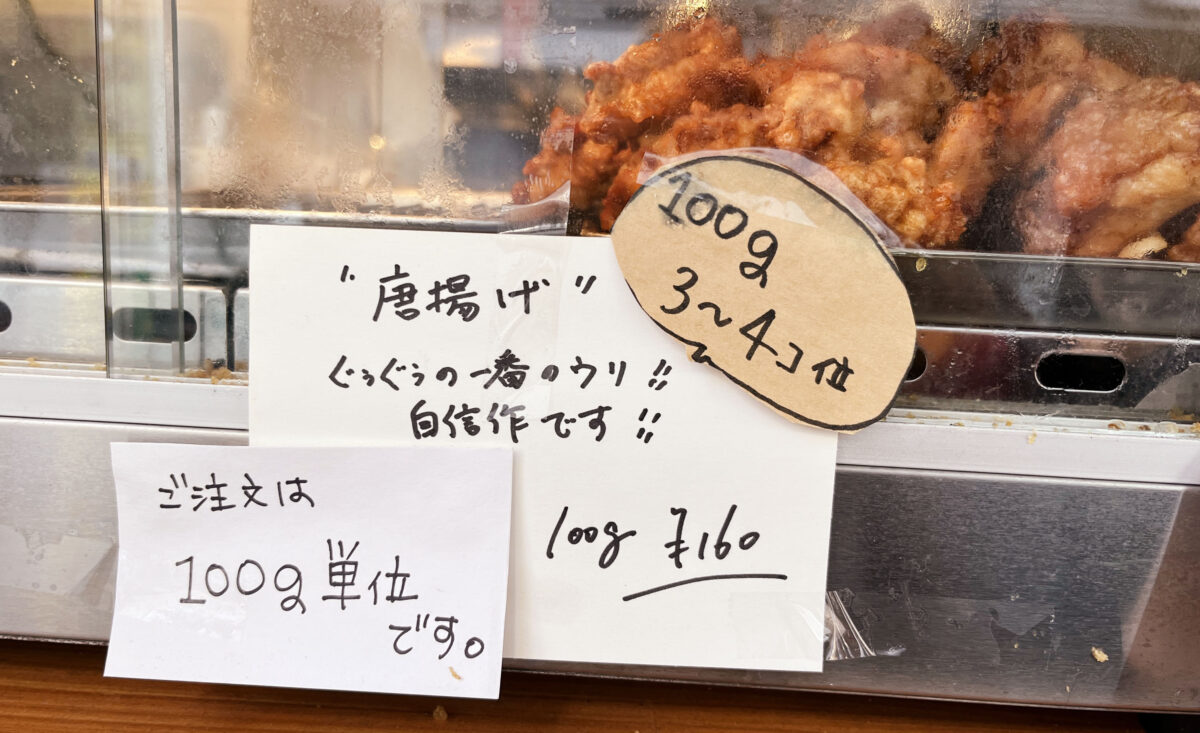 "唐揚げ"
ぐぅぐぅの一番のウリ!!
自信作です!!
100g ¥160
100g
3~4コ位
ご注文は
100g単位
です。